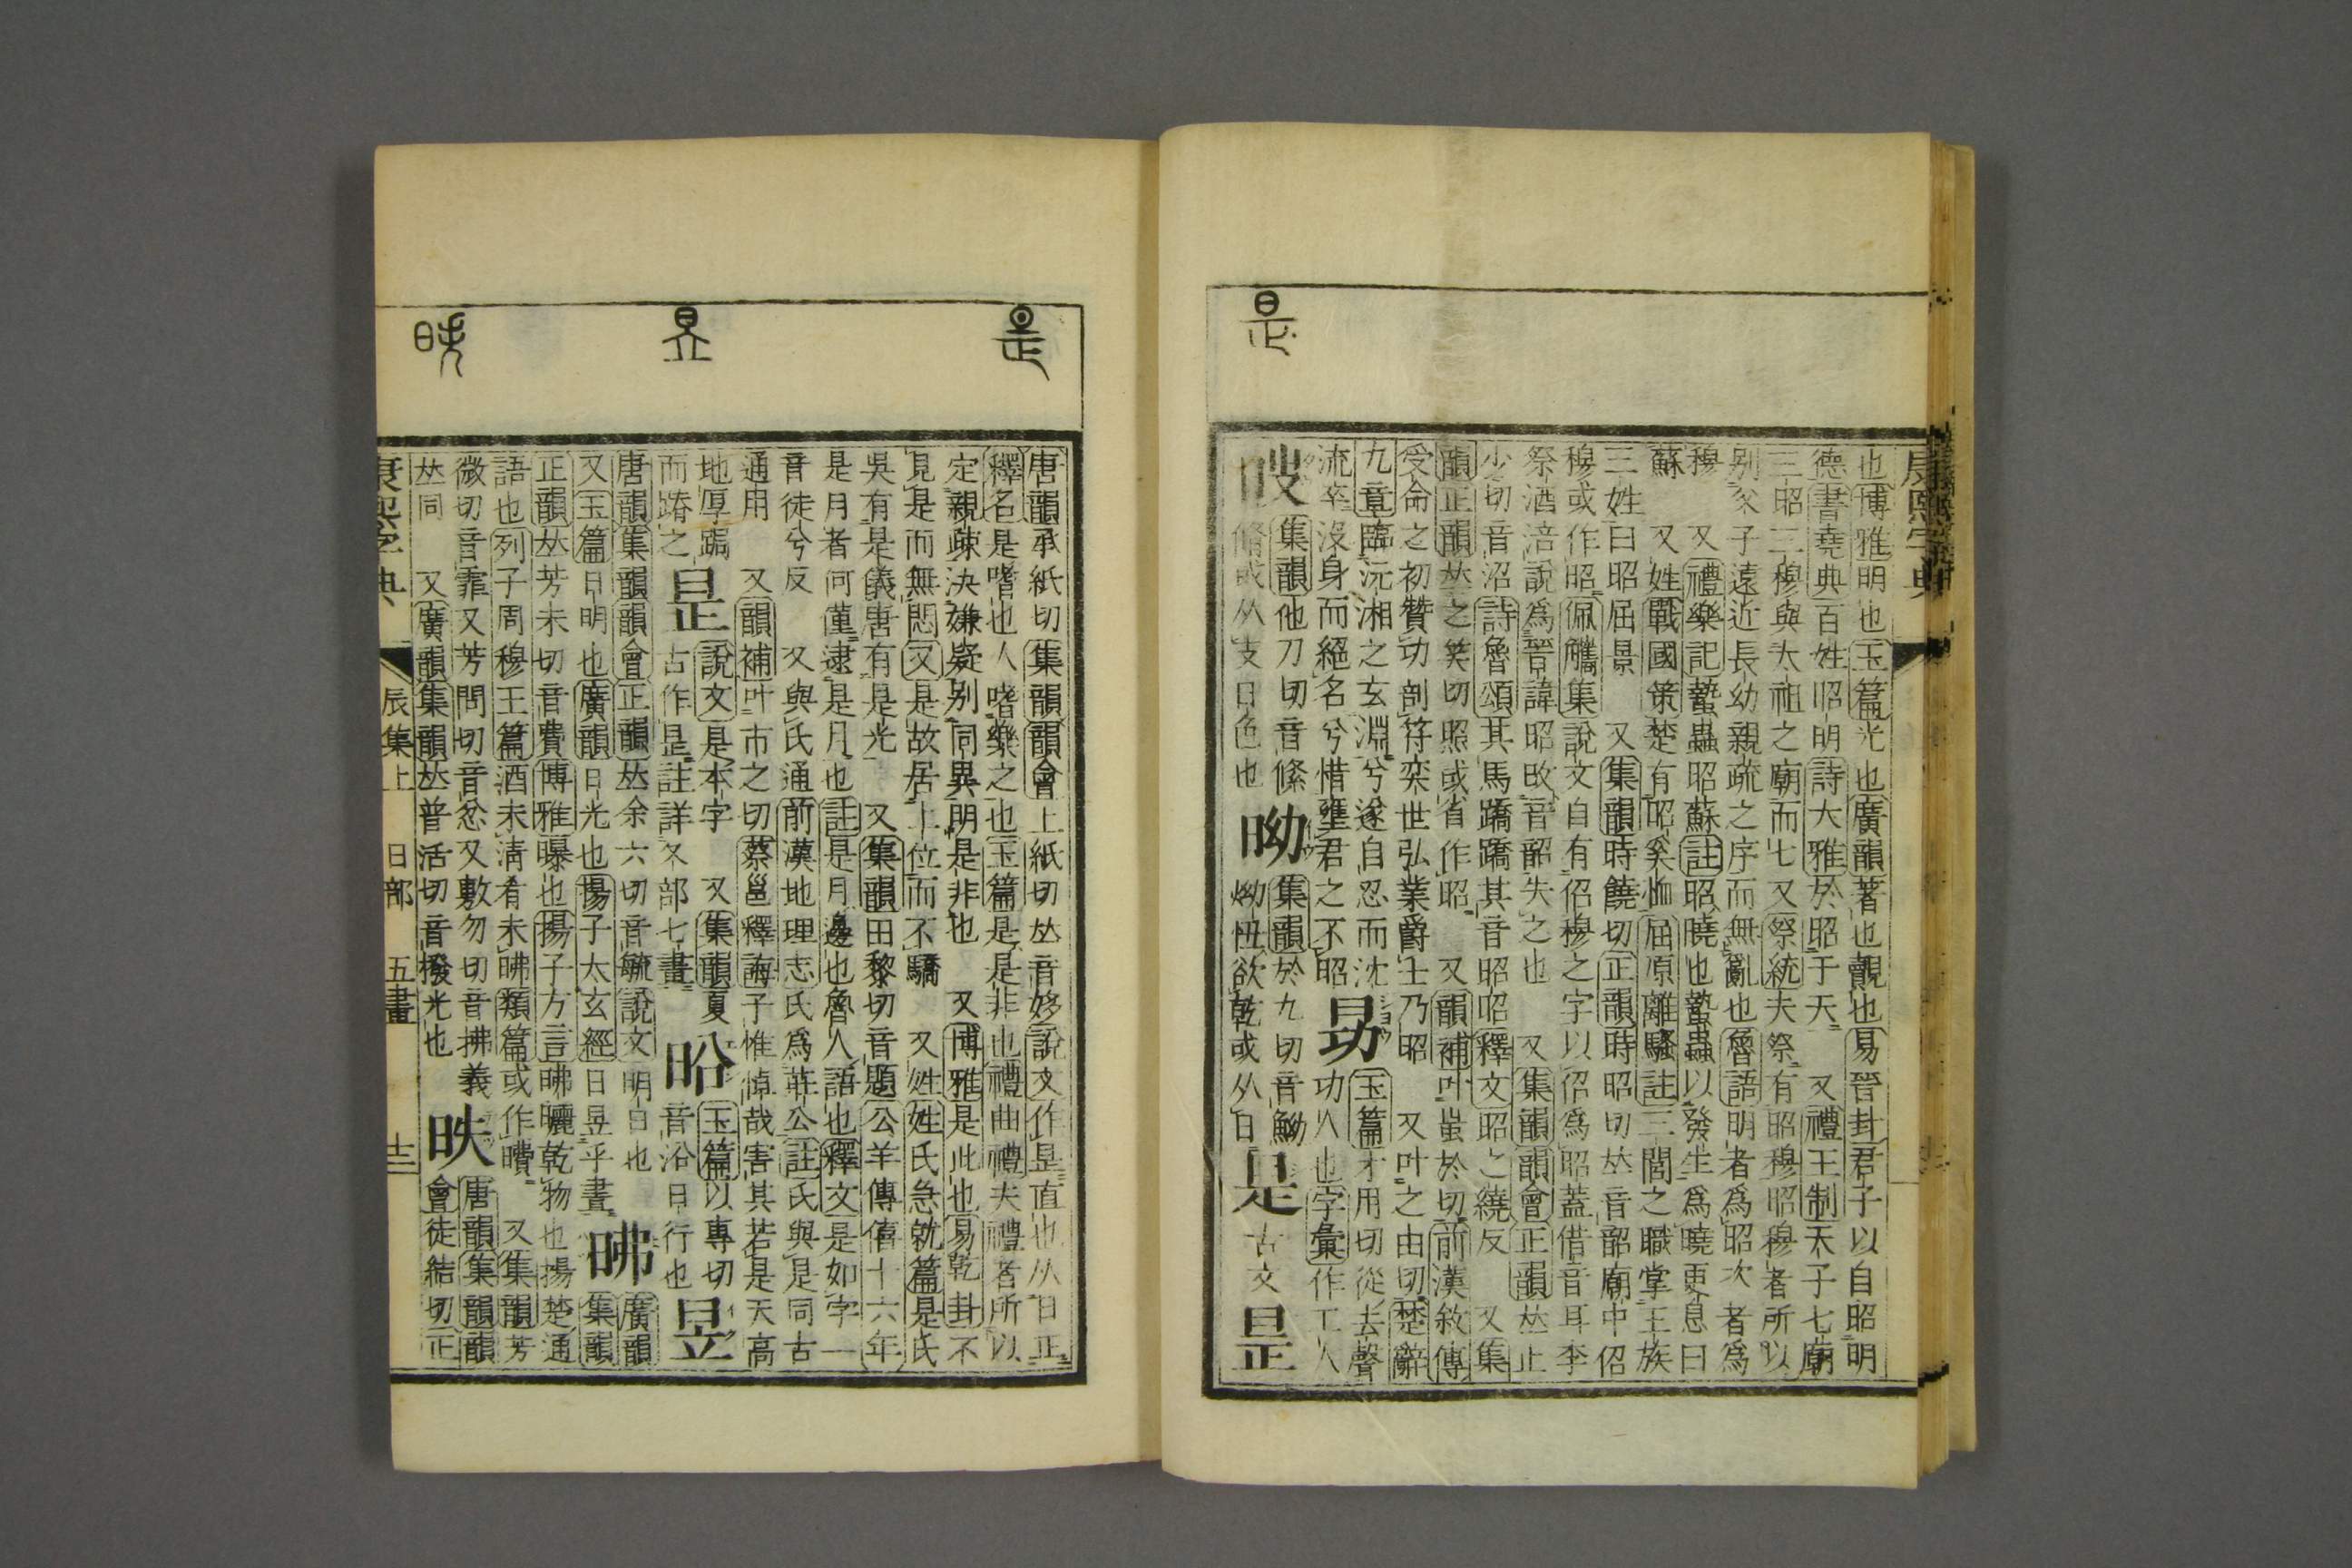 康熙字典
是
也博雅明也玉篇光也廣韻著也覿也易晉卦君子以自昭明
德書堯典百姓昭明詩大雅於昭于天 又禮王制天子七廟
三昭三穆與太祖之廟而七又祭統夫祭有昭穆昭穆者所以
别父子遠近長幼親疏之序而無亂也魯語明者爲昭次者爲
穆 又禮樂記蟄蟲昭蘇註昭曉也蟄蟲以發生爲曉更息曰
蘇 又姓戰國策楚有昭奚恤屈原離騷註三閭之職掌王族
三姓曰昭屈景 又集韻時饒切正韻時昭切𠀤音韶廟中佋
穆或作昭佩觿集說文自有佋穆之字以佋爲昭蓋借音耳李
祭酒涪說爲晉諱昭改音韶失之也 又集韻韻會正韻𠀤止
少切音沼詩魯頌其馬蹻蹻其音昭昭釋文昭之繞反 又集
韻正韻𠀤之笑切照或省作昭 又韻補叶蚩於切前漢敘傳
受命之初贊功剖符奕世弘業爵士乃昭 又叶之由切楚辭
九章臨沅湘之玄淵兮遂自忍而沈
流卒沒身而絕名兮惜壅君之不昭
玉篇才用切從去聲
功人也字彙作工人
集韻他刀切音絛
日色也
集韻於九切音
欲乾或从日
是 古文 昰
是 昱 昳
唐韻承紙切集韻韻會上紙切𠀤音姼說文作昰直也从日正
釋名是嗜也人嗜樂之也玉篇是是非也禮曲禮夫禮者所以
定親疎決嫌疑别同異明是非也 又博雅是此也易乾卦不
見是而無悶又是故居上位而不驕 又姓姓氏急就篇是氏
吳有是儀唐有是光 又集韻田黎切音題公羊傳僖十六年
是月者何僅逮是月也註是月邊也魯人語也釋文是如字一
音徒兮反 又與氏通前漢地理志氏爲莊公註氏與是同古
通用 又韻補叶市之切蔡邕釋誨子惟悼哉害其若是天高
地厚跼
而蹐之
昰
說文是本字 又集韻夏
古作昰註詳夊部七畫
㕣
玉篇以專切
音沿日行也
昱
唐韻集韻韻會正韻𠀤余六切音毓說文明日也 廣韻
又玉篇日明也廣韻日光也揚子太玄經日昱乎晝
昲
集韻
正韻𠀤芳未切音費博雅曝也揚子方言昲曬乾物也揚楚通
語也列子周穆王篇酒未淸肴未昲類篇或作㬠 又集韻芳
微切音霏又芳問切音忿又敷勿切音拂義
𠀤同 又廣韻集韻𠀤普活切音撥光也
昳
唐韻集韻韻
會徒結切正
康熙字典 辰集上 日部 五畫 十三